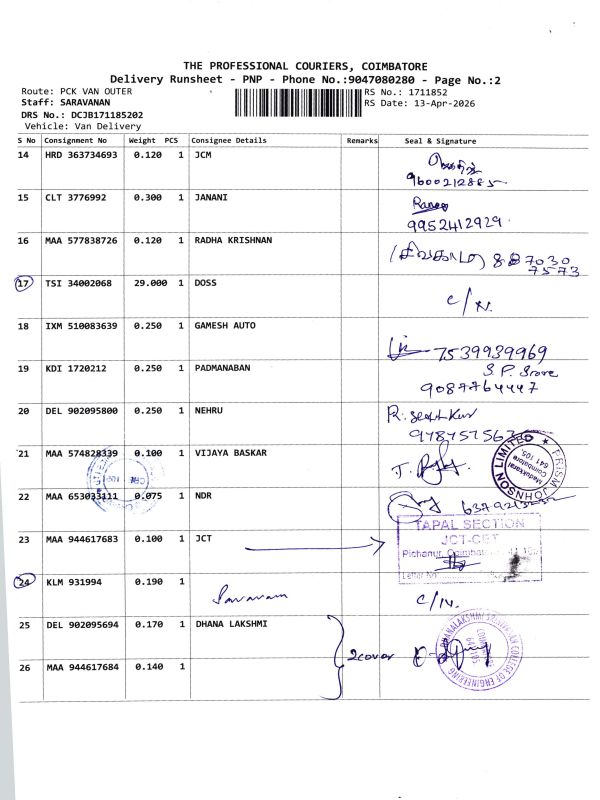 THE PROFESSIONAL COURIERS, COIMBATORE
Delivery Runsheet - PNP - Phone No.:9047080280 - Page No.:2
Route: PCK VAN OUTER
RS No.: 1711852
Staff: SARAVANAN
RS Date: 13-Apr-2026
DRS No.: DCJB171185202
Vehicle: Van Delivery
S No Consignment No Weight PCS Consignee Details Remarks Seal & Signature
14 HRD 363734693 0.120 1 JCM
9600212885
15 CLT 3776992 0.300 1 JANANI
9952412929
16 MAA 577838726 0.120 1 RADHA KRISHNAN
887030
7573
17 TSI 34002068 29.000 1 DOSS C/N.
18 IXM 510083639 0.250 1 GAMESH AUTO
7539939969
19 KDI 1720212 0.250 1 PADMANABAN S.P. Store
9087764447
20 DEL 902095800 0.250 1 NEHRU
21 MAA 574828339 0.100 1 VIJAYA BASKAR
PRISM JOHNSON LIMITED
Madukkarai
Coimbatore
641 105.
22 MAA 653033111 0.075 1 NDR
23 MAA 944617683 0.100 1 JCT
TAPAL SECTION
JCT-CET
Pichanur, Coimbatore
Letter No
24 KLM 931994 0.190 1 C/N.
25 DEL 902095694 0.170 1 DHANA LAKSHMI
2cover
DHANALAKSHMI SRINIVASAN COLLEGE OF ENGINEERING
COIMBATORE
641 105
26 MAA 944617684 0.140 1